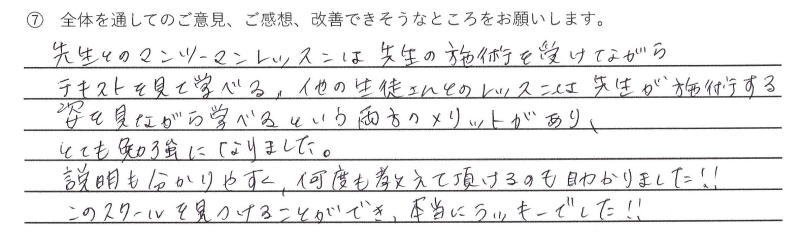 ⑦ 全体を通してのご意見、ご感想、改善できそうなところをお願いします。
先生とのマンツーマンレッスンは先生の施術を受けながら
テキストを見て学べる、他の生徒さんとのレッスンは先生が施術する
姿を見ながら学べるという両方のメリットがあり、
とても勉強になりました。
説明も分かりやすく、何度も教えて頂けるのも助かりました!!
このスクールを見つけることができ、本当にラッキーでした!!